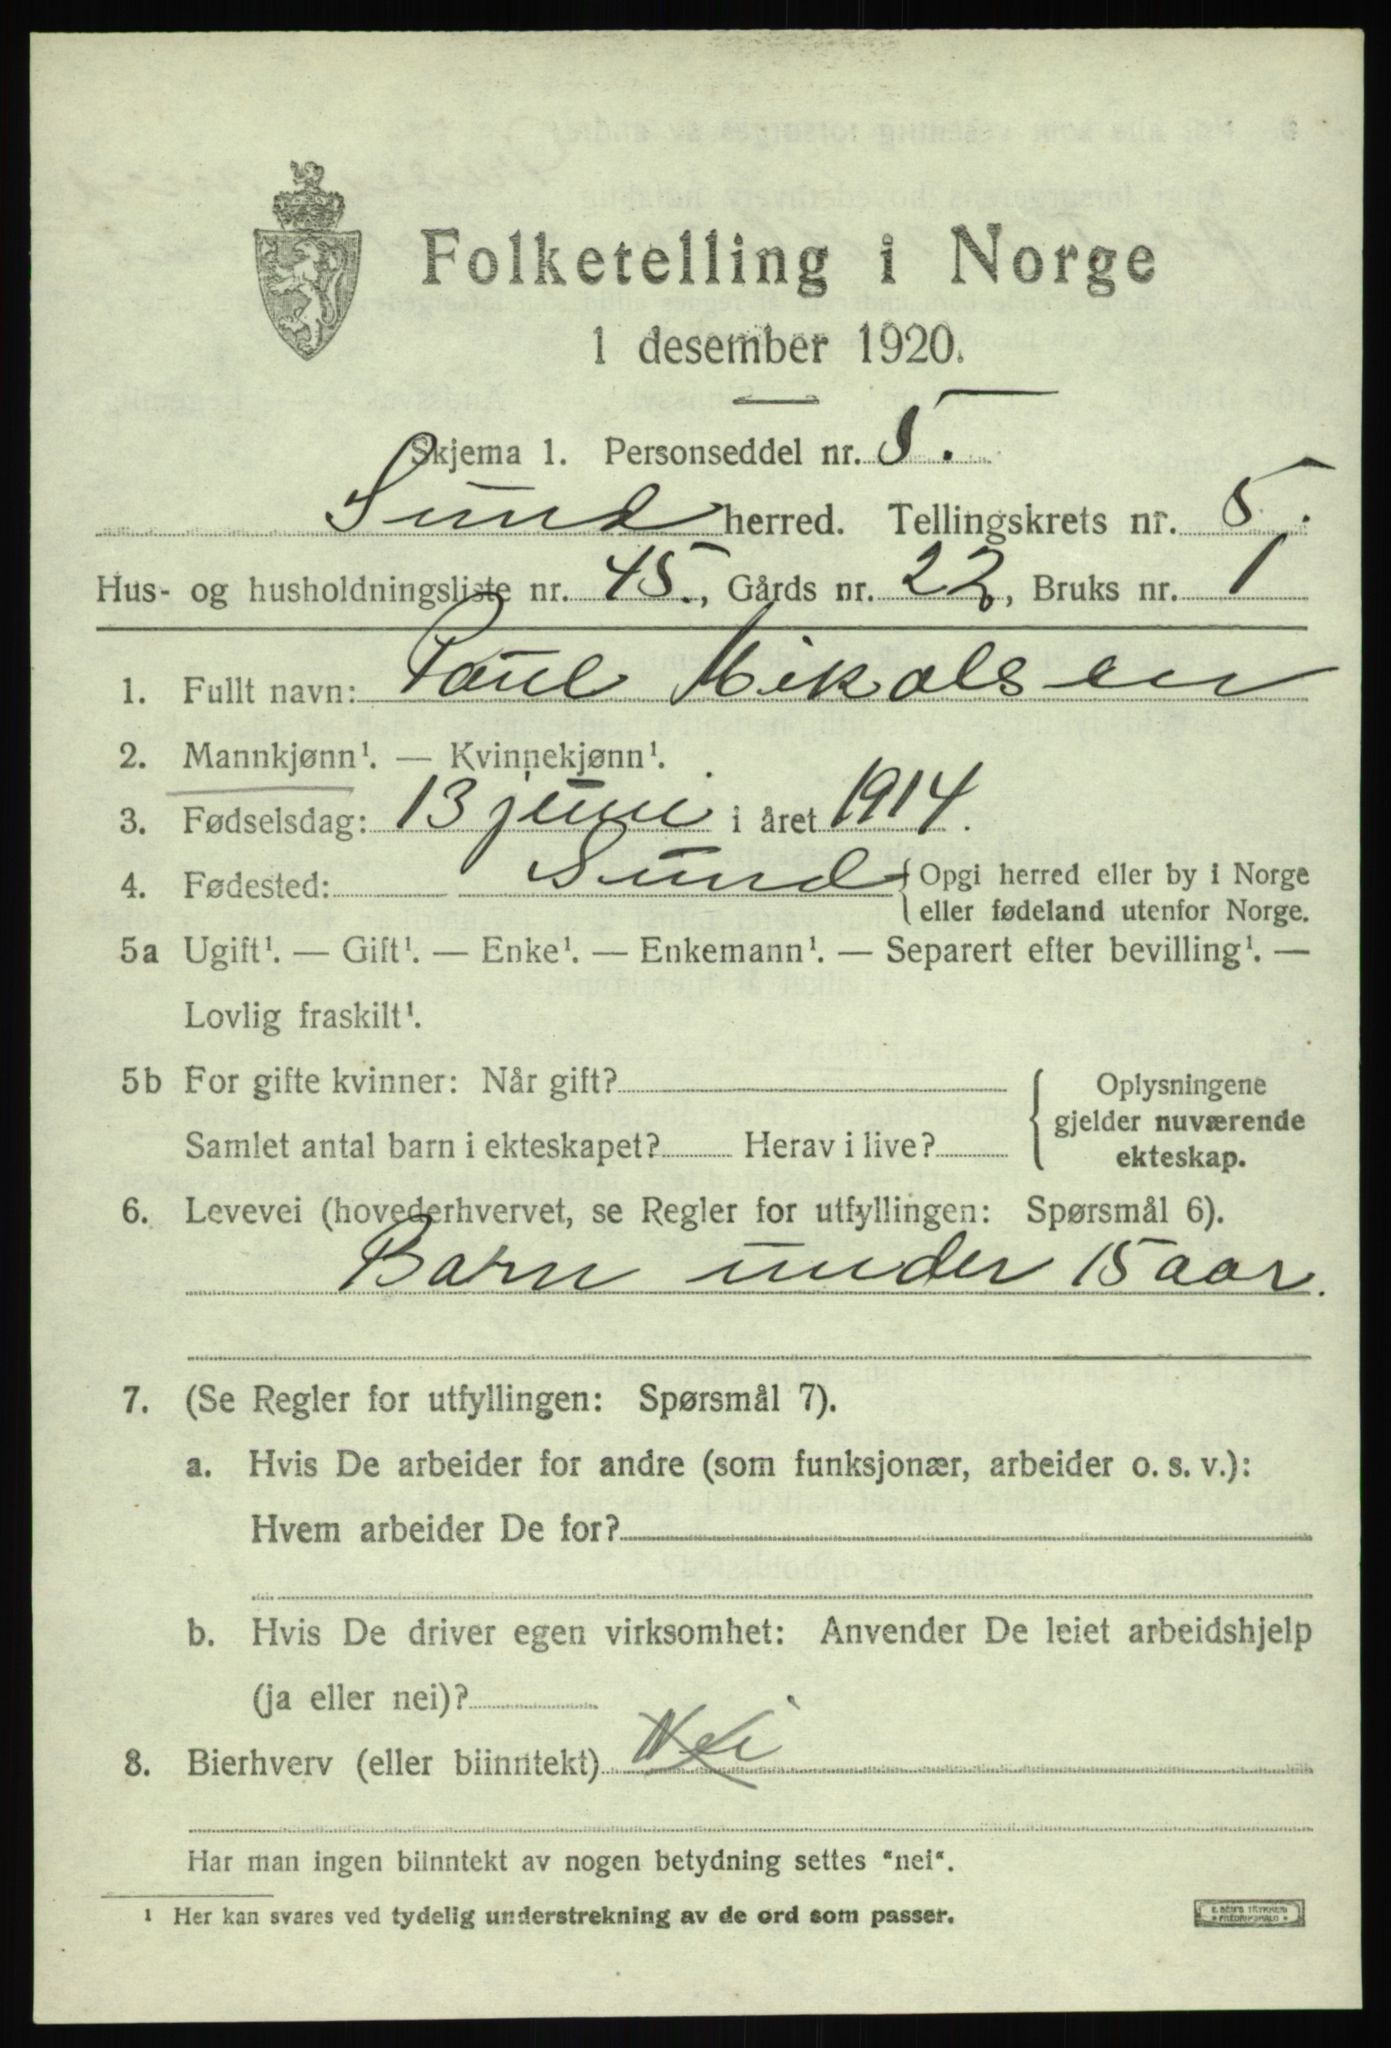 Folketelling i Norge
1 desember 1920.
Skjema 1. Personseddel nr. 5.
Sund herred. Tellingskrets nr. 5.
Hus- og husholdningsliste nr. 45., Gårds nr. 22, Bruks nr. 1
1. Fullt navn: Paul Mikalsen
2. Mannkjønn¹. — Kvinnekjønn¹.
3. Fødselsdag: 13 juni i året 1914.
4. Fødested: Sund { Opgi herred eller by i Norge
eller fødeland utenfor Norge.
5a Ugift¹. — Gift¹. — Enke¹. — Enkemann¹. — Separert efter bevilling¹. —
Lovlig fraskilt¹.
5b For gifte kvinner: Når gift? { Oplysningene
gjelder nuværende
Samlet antal barn i ekteskapet? Herav i live? ekteskap.
6. Levevei (hovederhvervet, se Regler for utfyllingen: Spørsmål 6).
Barn under 15 aar.
7. (Se Regler for utfyllingen: Spørsmål 7).
a. Hvis De arbeider for andre (som funksjonær, arbeider o. s. v.):
Hvem arbeider De for?
b. Hvis De driver egen virksomhet: Anvender De leiet arbeidshjelp
(ja eller nei)?
8. Bierhverv (eller biinntekt) Nei
Har man ingen biinntekt av nogen betydning settes "nei".
¹ Her kan svares ved tydelig understrekning av de ord som passer.